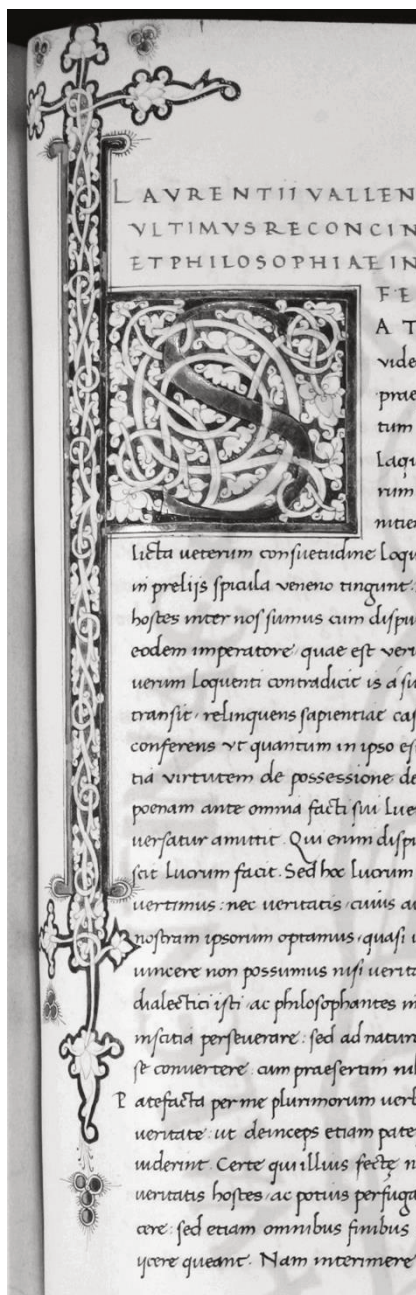 LAVRENTII VALLEN
VLTIMVS RECONCIN
ET PHILOSOPHIAE IN
FE
S
AT
vide
prae
tum
Laqu
rum
nitier
licta ueterum consuetudine Loqu
in prelijs spicula veneno tingunt.
hostes inter nos sumus cum dispu
eodem imperatore, quae est veri
uerum Loquenti contradicit is a su
transit, relinquens sapientiae cas
conferens vt quantum in ipso es
tia virtutem de possessione de
poenam ante omnia facti sui Lue
uersatur amittit. Qui enim dispu
scit Lucrum facit. Sed hoc Lucrum
uertimus: nec ueritatis, cuius au
nostram ipsorum optamus, quasi u
uincere non possumus nisi uerita
dialectici isti, ac philosophantes in
inscitia perseuerare: sed ad natur
se conuertere: cum praesertim nul
Patefacta per me plurimorum uerb
ueritate: ut deinceps etiam pate
uiderint. Certe qui illius fectę n
ueritatis hostes, ac potius perfuga
cere: sed etiam omnibus finibus
ijcere queant. Nam interimere